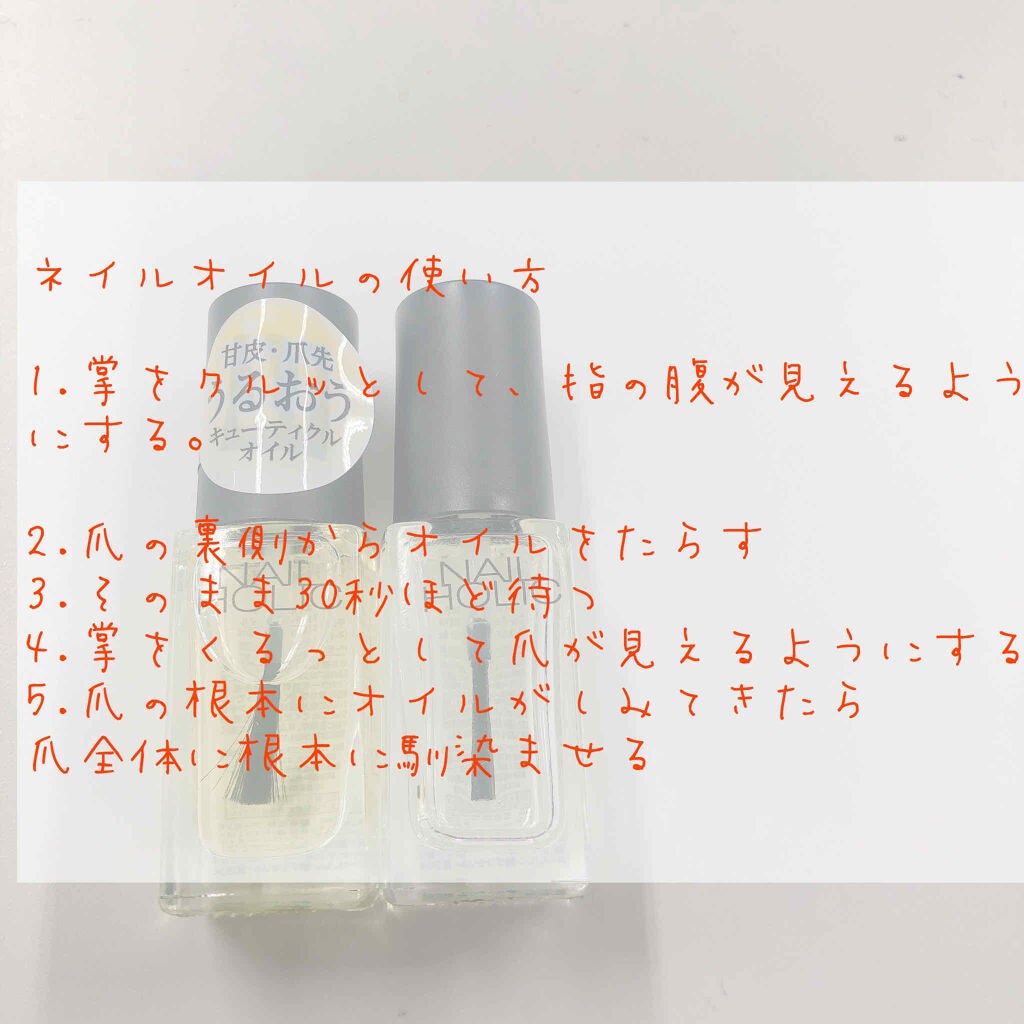 ネイルオイルの使い方
1.掌をクルッとして、指の腹が見えるよう
にする。
2.爪の裏側からオイルをたらす
3.そのまま30秒ほど待つ
4.掌をくるっとして爪が見えるようにする
5.爪の根本にオイルがしみてきたら
爪全体に根本に馴染ませる
甘皮・爪先
うるおう
キューティクル
オイル
NAIL
HOLIC
NAIL
HOLIC